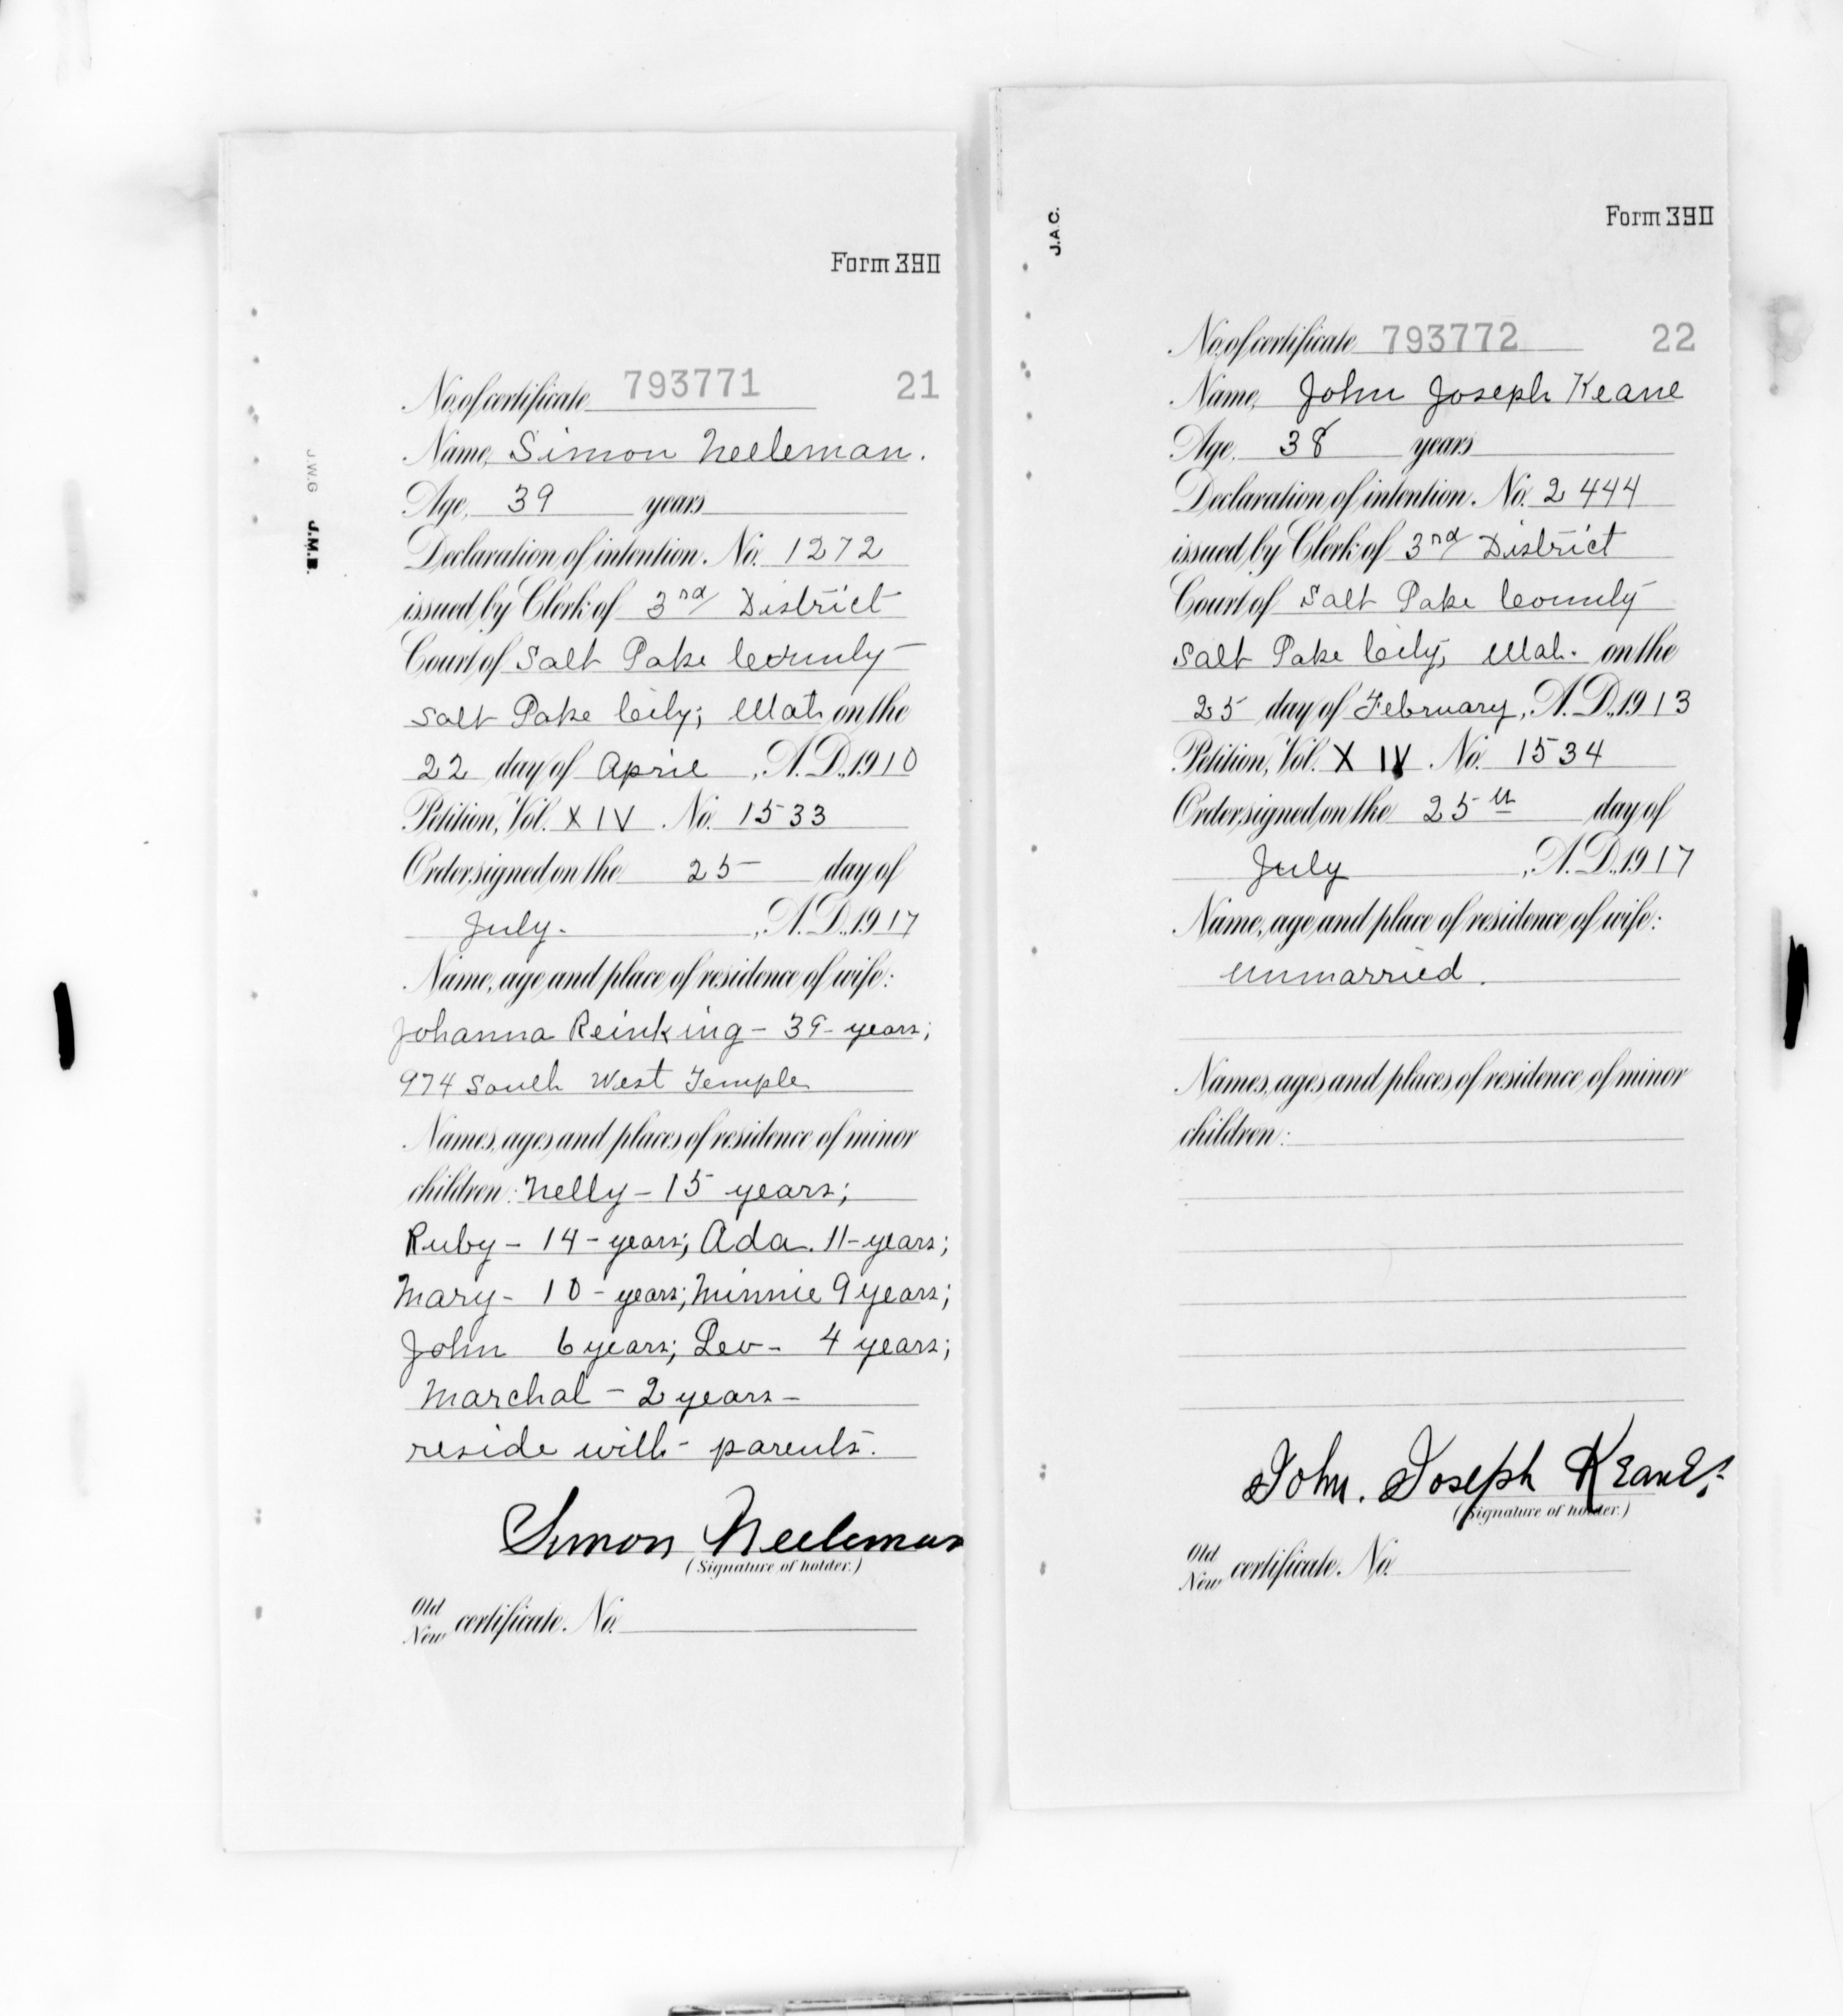 Form 390
No. of certificate 793771 21
Name, Simon Neeleman.
Age, 39 years
Declaration of intention. No. 1272
issued by Clerk of 3rd District
Court of Salt Lake County
Salt Lake City; Utah on the
22 day of April, A.D., 1910
Petition, Vol. XIV. No. 1533
Order signed on the 25 day of
July. , A.D., 1917
Name, age and place of residence of wife:
Johanna Reinking - 39 - years;
974 South West Temple
Names, ages and places of residence of minor
children: Nelly - 15 years;
Ruby - 14 - years; Ada. 11 - years;
Mary - 10 - years; Minnie 9 years;
John 6 years; Leo - 4 years;
Marchal - 2 years -
reside with - parents.
Simon Neeleman
(Signature of holder.)
Old
New certificate. No.
J.W.G J.M.B.
Form 390
J.A.C.
No. of certificate 793772 22
Name, John Joseph Keane
Age, 38 years
Declaration of intention. No. 2444
issued by Clerk of 3rd District
Court of Salt Lake County
Salt Lake City, Utah. on the
25 day of February, A.D., 1913
Petition, Vol. XIV. No. 1534
Order signed on the 25th day of
July , A.D., 1917
Name, age and place of residence of wife:
Unmarried.
Names, ages and places of residence of minor
children:
John. Joseph Keane
(Signature of holder.)
Old
New certificate. No.